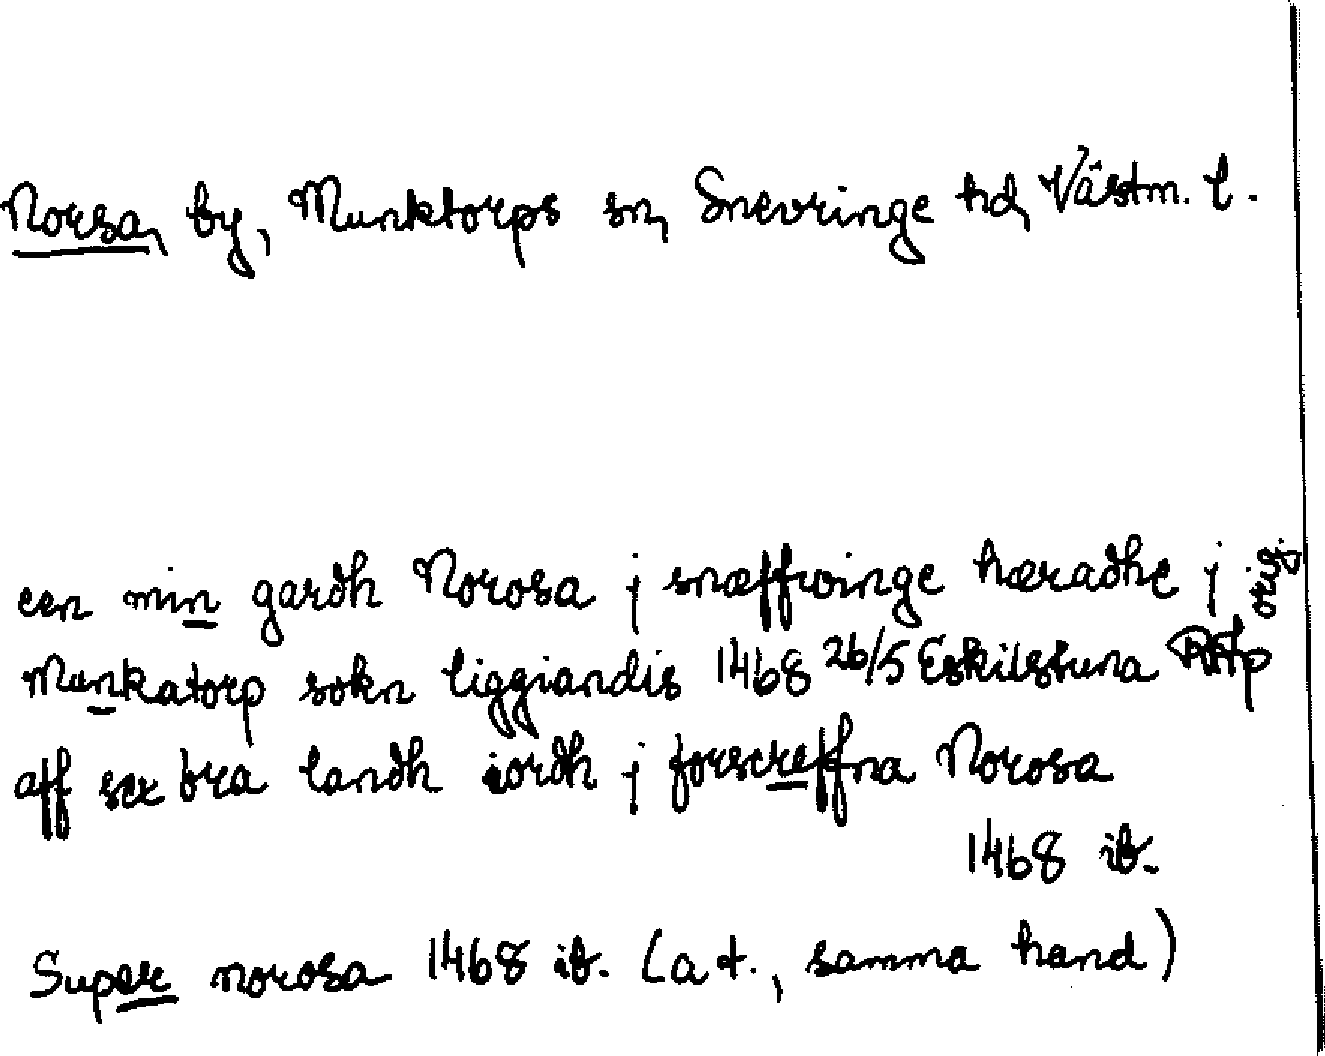 Norsa, by, Munktorps sn, Snevringe hd, Västm. l.
een min gardh Norosa j snæffringe hæradhe j orig.
Munkatorp sokn liggiandis 1468 26/5 Eskilstuna RAp
aff sex öra landh iordh j forscreffna Norosa
1468 ib.
Super norosa 1468 ib. (a t., samma hand)